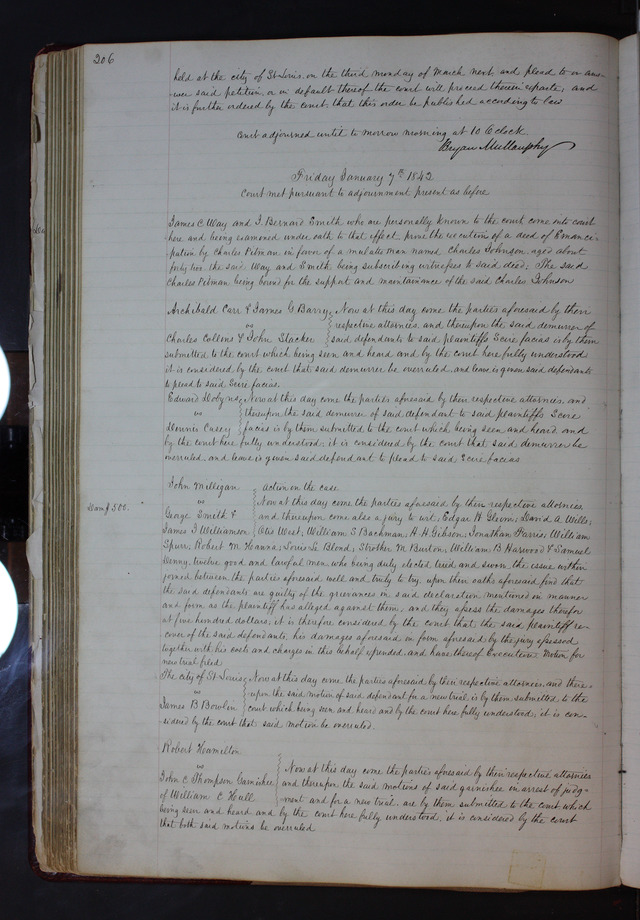 206
held at the city of St Louis on the third monday of March next and plead to or ans-
-wer said petition, or in default thereof the court will proceed therein exparte, and
it is further ordered by the court that this order be published according to law
Court adjourned until to morrow morning at 10 O clock.
Bryan Mullanphy
Friday January 7th 1842
Court met pursuant to adjournment present as before
James C Way and J. Bernard Smith who are personally known to the court come into court
here and being examoned under oath to that effect prove the execution of a deed of Emanci-
pation by Charles Pitman in favor of a mulatto man named Charles Johnson aged about
forty two the said Way and Smith being subscribing witnesses to said deed; The said
Charles Pitman being bound for the support and maintainance of the said Charles Johnson
Archibald Carr & James G Barry, Now at this day come the parties aforesaid by their
vs respective attornies and thereupon the said demurrer of
Charles Collens & John Stacker said defendants to said plaintiffs Scire facias is by them
submitted to the court which being seen and heard and by the court here fully understood
it is considered by the court that said demurrer be overruled and leave is given said defendants
to plead to said Scire facias.
Edward Dobyns, Now at this day come the parties aforesaid by their respective attornies, and
vs thereupon the said demurrer of said defendant to said plaintiffs Scire
Dennis Casey facias is by them submitted to the court which being seen and heard and
by the court here fully understood; it is considered by the court that said demurrer be
overruled and leave is given said defendant to plead to said Scire facias
John Milligan action on the case
vs Now at this day come the parties aforesaid by their respective attornies
Dam$ 500. George Smith & and thereupon come also a jury to wit, Edgar H Glenn; David A Wills;
James T Williamson Otis West, William S Bachman, H H Gibson; Jonathan Farris; William
Spurr, Robert M Hanna; Louis Le Blond; Strother M Burton; William B Harwood & Samuel
Denny, twelve good and lawful men, who being duly elected tried and sworn the issue within
joined between the parties aforesaid well and truly to try, upon their oaths aforesaid find that
the said defendants are guilty of the grievances in said declaration mentioned in manner
and form as the plaintiff has alleged against them; and they assess the damages therefor
at five hundred dollars; it is therefore considered by the court that the said plaintiff re-
cover of the said defendants, his damages aforesaid in form aforesaid by the jury assessed
together with his costs and charges in this behalf expended and have thereof Execution Motion for
new trial filed
The city of St Louis, Now at this day come the parties aforesaid by their respective attornies, and there-
vs upon the said motion of said defendant for a new trial is by them submitted to the
James B Bowlin court which being seen and heard and by the court here fully understood; it is con-
sidered by the court that said motion be overruled.
Robert Hamilton
vs Now at this day come the parties aforesaid by their respective attornies
John C Thompson Garnishee and thereupon the said motions of said garnishee in arrest of judg-
of William C Hull ment and for a new trial are by them submitted to the court which
being seen and heard and by the court here fully understood, it is considered by the court
that both said motions be overruled